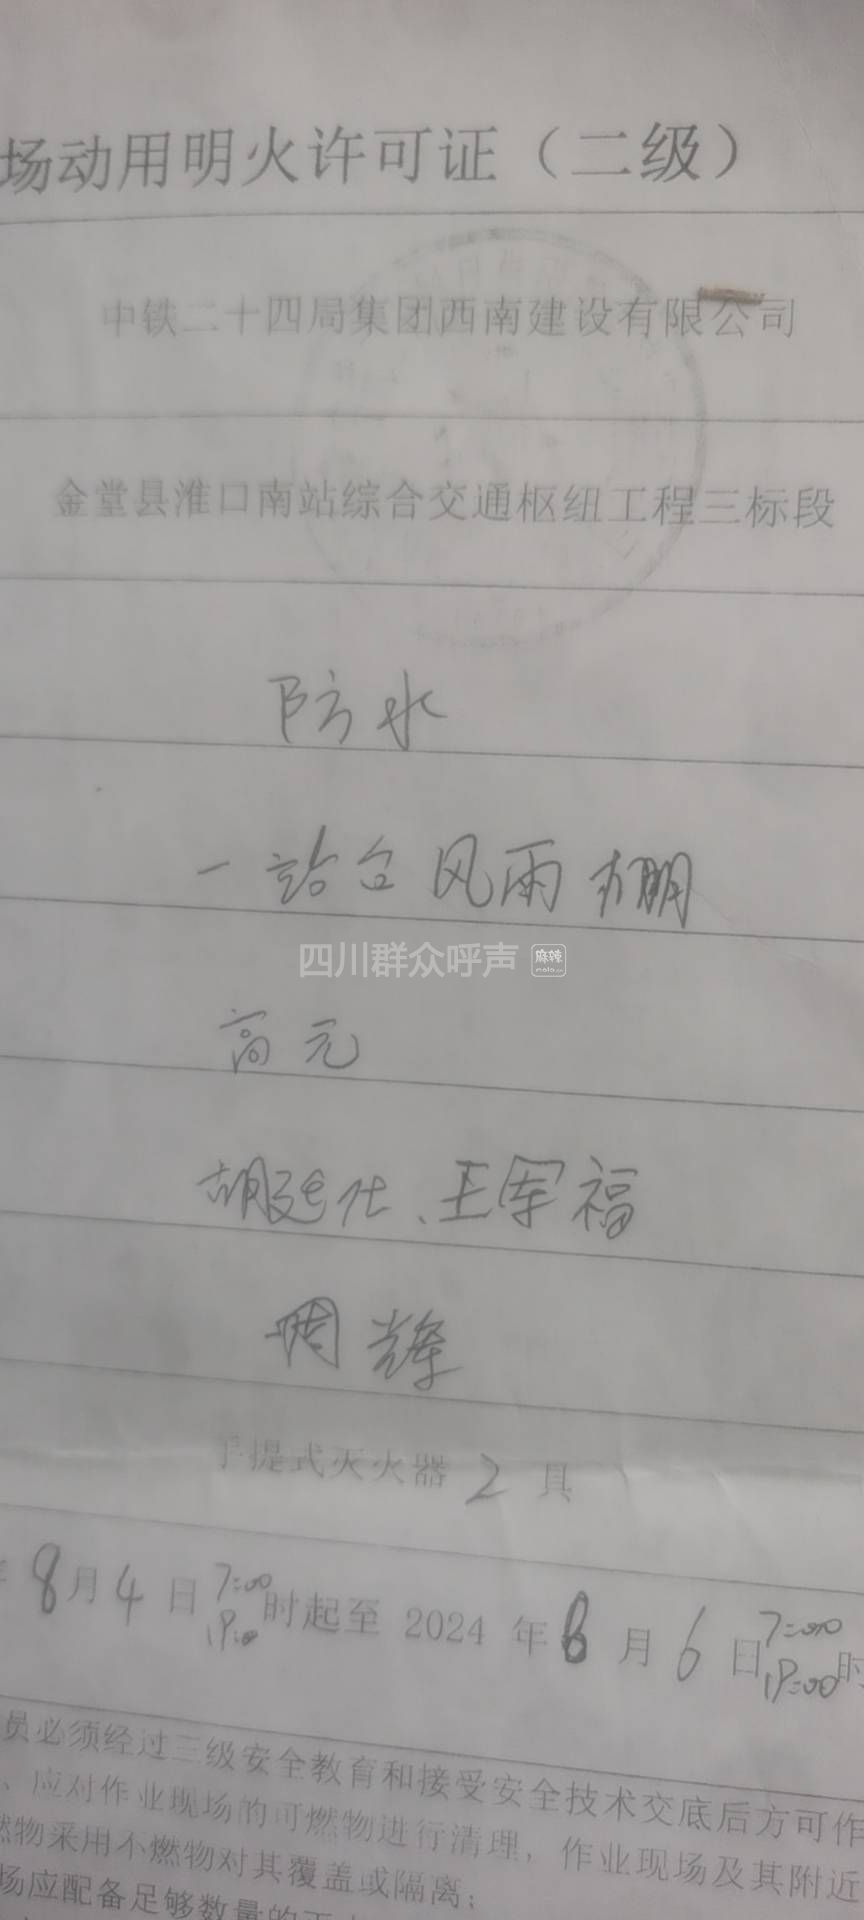 场动用明火许可证（二级）
中铁二十四局集团西南建设有限公司
金堂县淮口南站综合交通枢纽工程三标段
防水
一站台风雨棚
四川群众呼声 麻辣
高元
胡廷仕、王军福
周辉
手提式灭火器2具
8月4日7:00 19:00时起至2024年8月6日7:00 19:00时
员必须经过三级安全教育和接受安全技术交底后方可作
、应对作业现场的可燃物进行清理，作业现场及其附近
燃物采用不燃物对其覆盖或隔离；
场应配备足够数量的灭